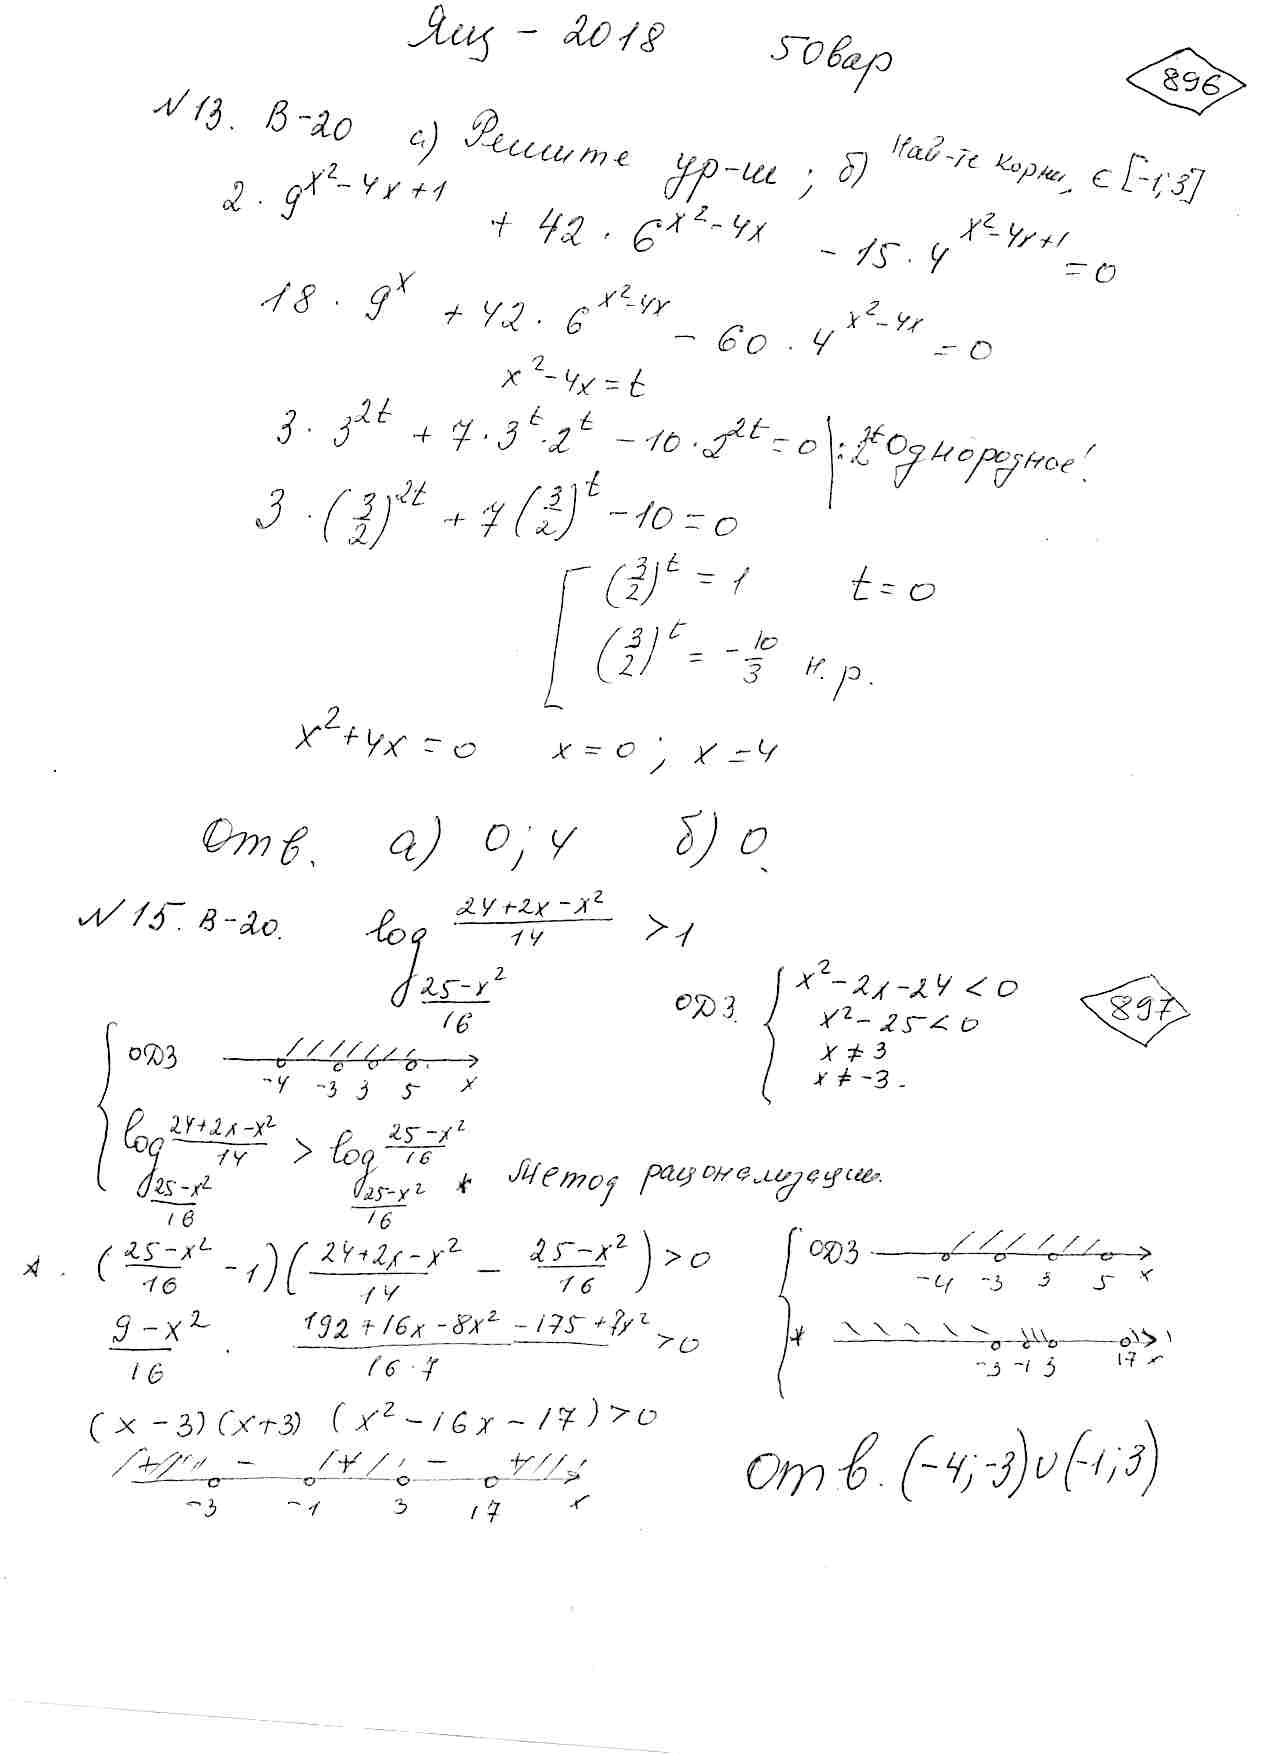 Ящ - 2018 50вар
896
N 13. В-20 а) Решите ур-ие ; б) Най-те корни, ∈ [-1; 3]
2 · 9^(x²-4x+1) + 42 · 6^(x²-4x) - 15 · 4^(x²-4x+1) = 0
18 · 9^x + 42 · 6^(x²-4x) - 60 · 4^(x²-4x) = 0
x²-4x = t
3 · 3^(2t) + 7 · 3^t · 2^t - 10 · 2^(2t) = 0 | : 2^(2t) Однородное!
3 · (3/2)^(2t) + 7 (3/2)^t - 10 = 0
[ (3/2)^t = 1 t = 0
(3/2)^t = - 10/3 н. р.
x² + 4x = 0 x = 0 ; x = 4
Отв. а) 0; 4 б) 0.
N 15. В-20. log_((25-x²)/16) (24+2x-x²)/14 > 1
ОДЗ. { x² - 2x - 24 < 0
x² - 25 < 0
x ≠ 3
x ≠ -3.
897
{ ОДЗ -4 -3 3 5 x
log_((25-x²)/16) (24+2x-x²)/14 > log_((25-x²)/16) (25-x²)/16 * Метод рационализации.
* . ((25-x²)/16 - 1) ((24+2x-x²)/14 - (25-x²)/16) > 0
(9-x²)/16 · (192+16x-8x²-175+7x²)/(16·7) > 0
(x-3)(x+3) (x²-16x-17) > 0
+ - + - +
-3 -1 3 17 x
{ ОДЗ -4 -3 3 5 x
* -3 -1 3 17 x
Отв. (-4; -3) ∪ (-1; 3)